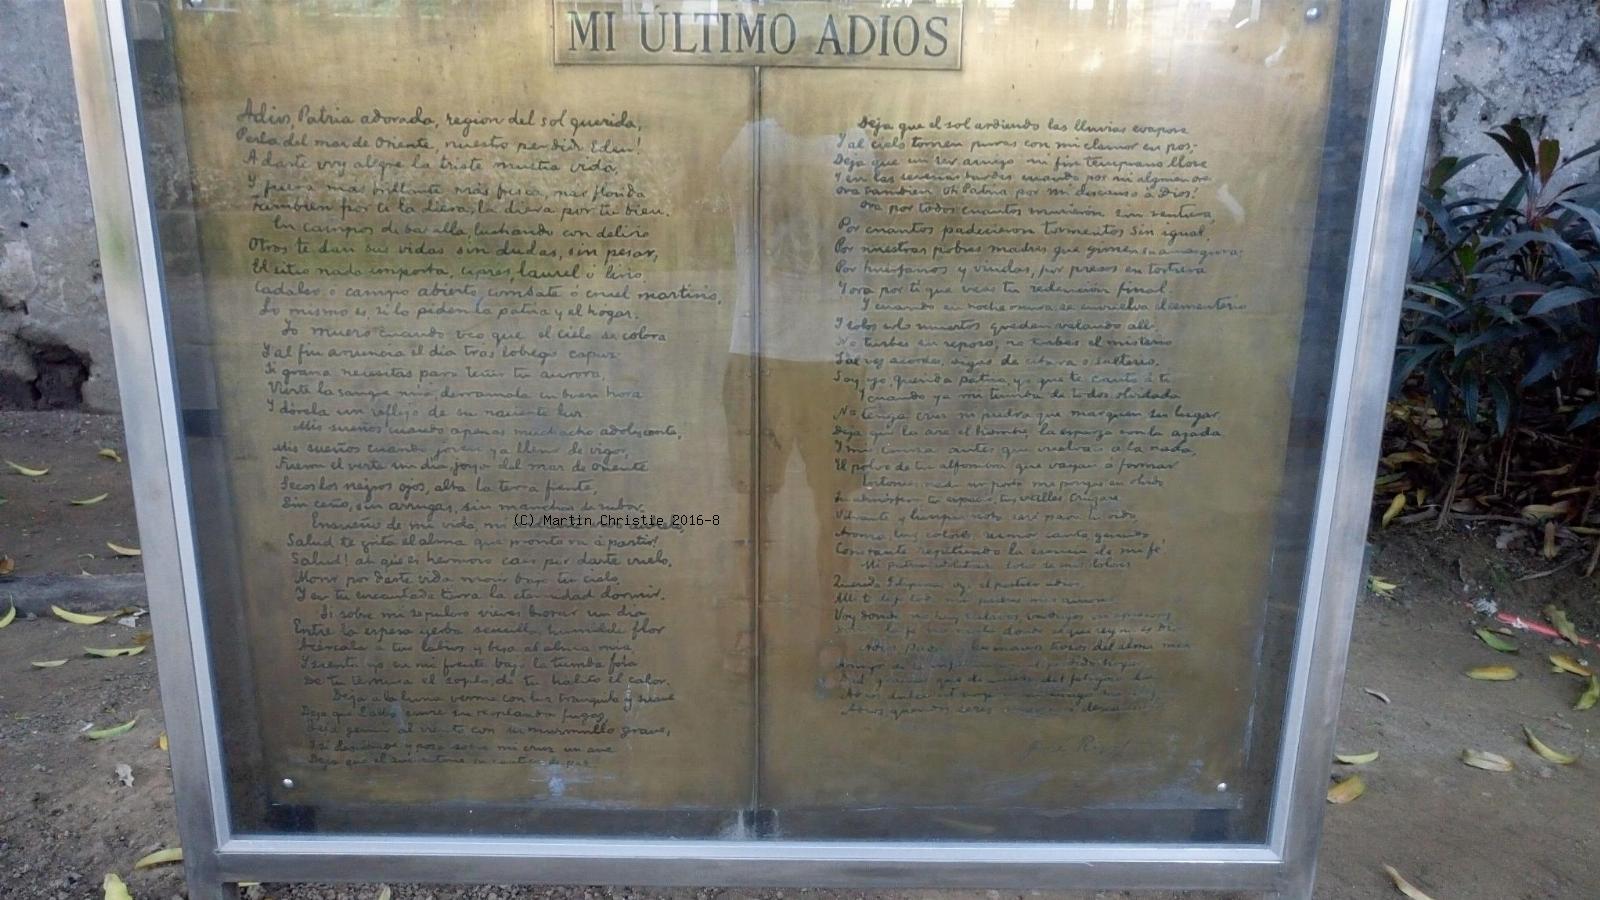 MI ÚLTIMO ADIOS
Adios, Patria adorada, region del sol querida,
Perla del mar de Oriente, nuestro perdido Eden!
A darte voy alegre la triste mustia vida,
Y fuera más brillante más fresca, más florida
Tambien por ti la diera, la diera por tu bien.
En campos de batalla, luchando con delirio
Otros te dan sus vidas sin dudas, sin pesar,
El sitio nada importa, cipres, laurel ó lirio
Cadalso o campo abierto, combate ó cruel martirio,
Lo mismo es si lo piden la patria y el hogar.
Yo muero cuando veo que el cielo se colora
Y al fin anuncia el dia tras lobrego capuz
Si grana necesitas para teñir tu aurora,
Vierte la sangre mia, derramala en buen hora
Y dorela un reflejo de su naciente luz
Mis sueños cuando apenas muchacho adolescente,
Mis sueños cuando joven ya lleno de vigor,
Fueron el verte un dia, joya del mar de oriente
Secos los negros ojos, alta la tersa frente,
Sin ceño, sin arrugas, sin manchas de rubor.
Ensueño de mi vida, mi
Salud te grita el alma que pronto va á partir!
Salud! ah que es hermoso caer por darte vuelo,
Morir por darte vida morir bajo tu cielo,
Y en tu encantada tierra la eternidad dormir.
Si sobre mi sepulcro vieres brotar un dia
Entre la espesa yerba sencilla, humilde flor
Acercala a tus labios y besa al alma mia,
Y sienta yo en mi frente bajo la tumba fria
De tu ternura el soplo, de tu halito el calor.
Deja a la luna verme con luz tranquila y suave
Deja que el alba envie su resplandor fugaz,
Deja gemir al viento con su murmullo grave,
Y si desciende y posa sobre mi cruz un ave
Deja que el ave entone su cantico de paz
Deja que el sol ardiendo las lluvias evapore
Y al cielo tornen puras con mi clamor en pos,
Deja que un ser amigo mi fin temprano llore
Y en las serenas tardes cuando por mi alguien ore
Ora tambien Oh Patria por mi descanso á Dios!
Ora por todos cuantos murieron sin ventura,
Por cuantos padecieron tormentos sin igual,
Por nuestras pobres madres que gimen su amargura;
Por huerfanos y viudas, por presos en tortura
Y ora por ti que veas tu redencion final.
Y cuando en noche oscura se envuelva el cementerio
Y solos solo muertos queden velando alli,
No turbes su reposo, no turbes el misterio
Tal vez acordes oigas de citara o salterio,
Soy yo, querida Patria, yo que te canto á ti
Y cuando ya mi tumba de todos olvidada
No tenga cruz ni piedra que marquen su lugar
Deja que la are el hombre, la esparza con la azada
Y mis cenizas antes que vuelvan á la nada,
El polvo de tu alfombra que vayan á formar
Entonces nada importa me pongas en olvido
Tu atmósfera tu espacio, tus valles cruzare
Vibrante y limpia nota sere para tu oido
Aroma, luz, colores, rumor, canto, gemido
Constante repitiendo la esencia de mi fé
Mi patria idolatrada, dolor de mis dolores
Querida Filipinas, oye el postrer adios.
Voy donde no hay esclavos
Adios, padres y hermanos trozos del alma mia
José Rizal
(C) Martin Christie 2016-8